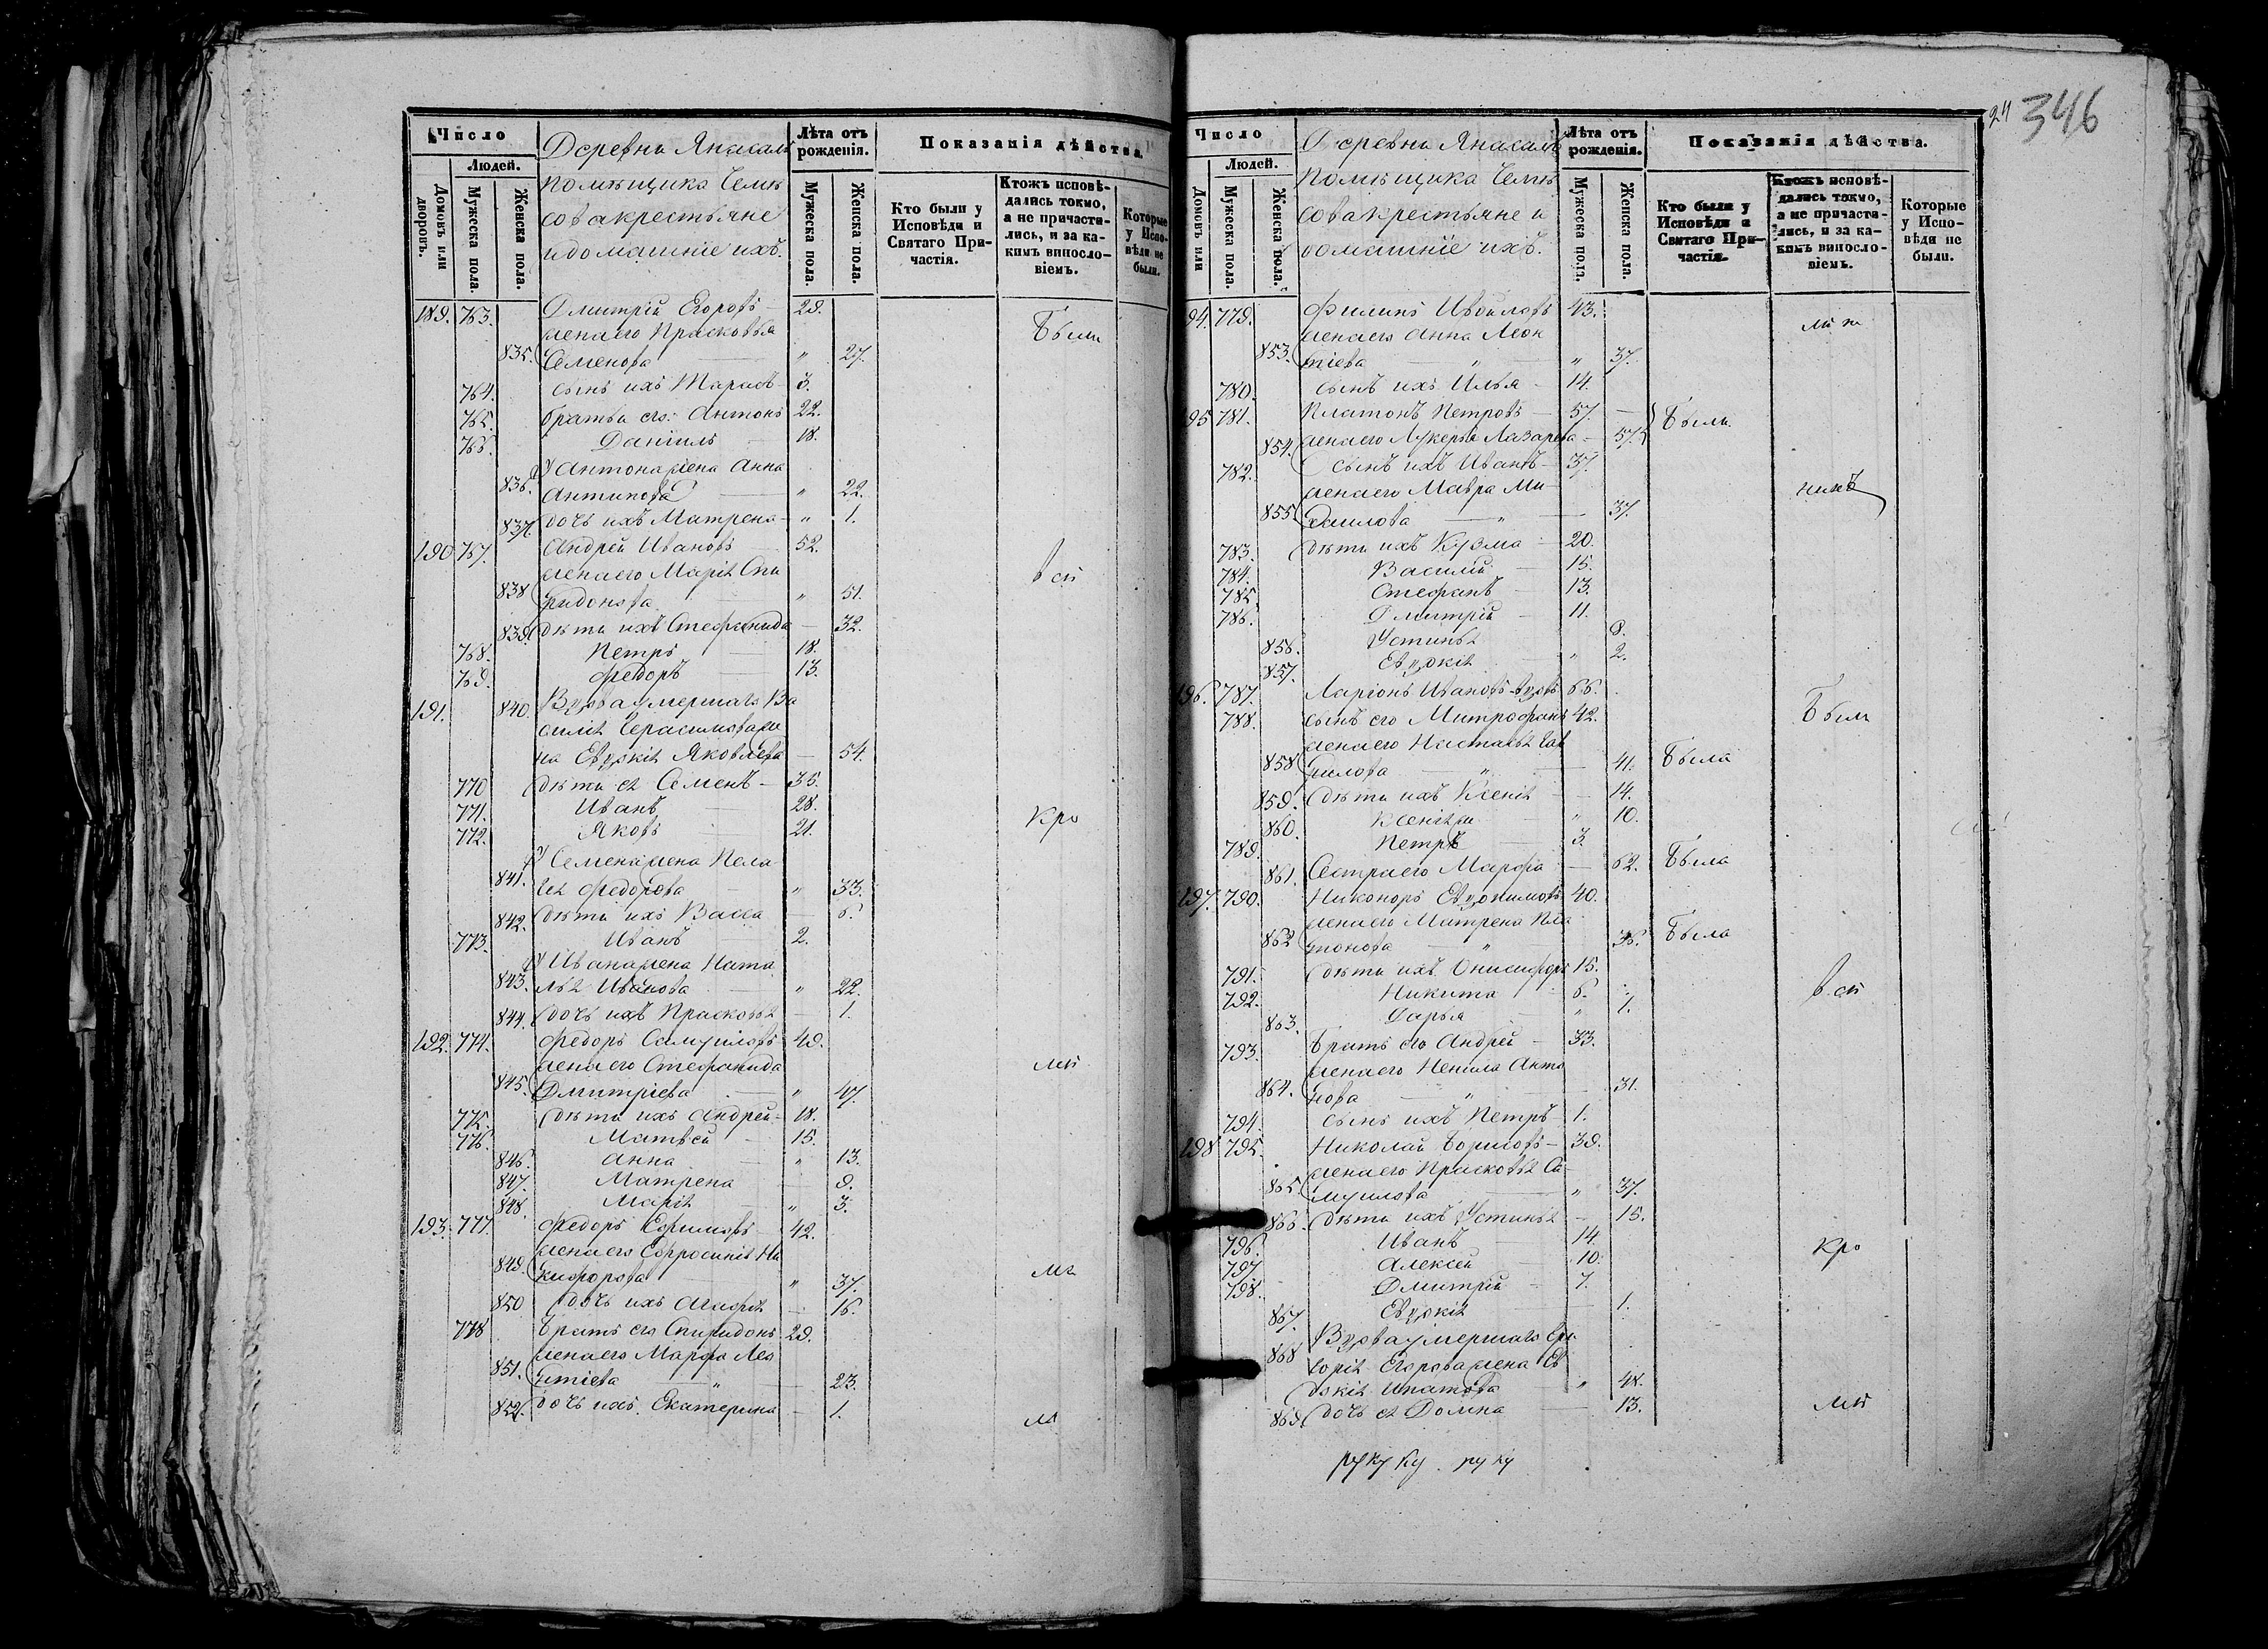 Число
Людей.
Домовъ или дворовъ.
Мужеска пола.
Женска пола.
Деревни Янасалъ
помѣщика Чемѣ
сова крестьяне
и домашніе ихъ.
Лѣта отъ рожденія.
Мужеска пола.
Женска пола.
Показанія дѣйства.
Кто были у Исповѣди и Святаго Причастія.
Ктожъ исповѣдались токмо, а не причастились, и за какимъ винословіемъ.
Которые у Исповѣди не были.
189. 763. Дмитрій Егоровъ 29.
жена его Прасковья Были
835. Семенова " 27.
764. сынъ ихъ Тарасъ 3.
765. братья его: Антонъ 22.
766. Даніилъ 18.
Антона жена Анна
836. Антипова " 22.
837. дочь ихъ Матрена " 1.
190 767. Андрей Ивановъ 52.
жена его Марія Спи вси
838 ридонова " 51.
839. дѣти ихъ Стефанида 32.
768. Петръ 18.
769. Федоръ 13.
191. 840. Вдова умершаго Ва
силія Герасимова же
на Евдокія Яковлева 54.
770 дѣти ея Семенъ 35.
771. Иванъ 28. Кро
772. Яковъ 21.
Семена жена Пела
841. гея Федорова " 33.
842. дѣти ихъ Васса 6.
773. Иванъ 2.
Ивана жена Ната
843. лья Иванова " 22.
844. дочь ихъ Прасковья 1.
192. 774. Федоръ Самуиловъ 49.
жена его Стефанида мѣ
845. Дмитріева " 47.
775. дѣти ихъ Андрей 18.
776. Матвей 15.
846. Анна " 13.
847. Матрена 9.
848. Марія " 3.
193. 777. Федоръ Ефимовъ 42.
жена его Ефросинія Ни
849. кифорова " 37.
850 дочь ихъ Агафья 16.
778 Братъ его Спиридонъ 29.
жена его Марфа Лео
851. нтіева " 23.
852. дочь ихъ Екатерина 1.
24 346
Число
Людей.
Домовъ или
Мужеска пола.
Женска пола.
Деревни Янасалъ
помѣщика Чемѣ
сова крестьяне и
домашніе ихъ.
Лѣта отъ рожденія.
Мужеска пола.
Женска пола.
Показанія дѣйства.
Кто были у Исповѣди и Святаго Причастія.
Ктожъ исповѣдались токмо, а не причастились, и за какимъ винословіемъ.
Которые у Исповѣди не были.
94. 779. Филипъ Ивойловъ 43.
жена его Анна Леон
853. тіева " " 37.
780. сынъ ихъ Илья 14.
95 781. Платонъ Петровъ 57. Были
854. жена его Лукерья Лазарева 57.
782. сынъ ихъ Иванъ 37.
жена его Мавра Ми нихъ
855 хаилова " 37.
783. дѣти ихъ Кузма 20.
784. Василій 15.
785 Стефанъ 13.
786. Дмитрій 11.
856. Устинья 8.
857. Евдокія " 2.
196. 787. Ларіонъ Ивановъ вдовъ 66.
788. сынъ его Митрофанъ 42. Были
жена его Настасья Гав
858 рилова " 41. Была
859. дѣти ихъ Ксенія 14.
860. Ксенія же " 10.
789. Петръ 3.
861. Сестра его Марфа 62. Была
197. 790. Никоноръ Евдокимовъ 40.
жена его Матрена Пла
862 тонова " 36. Была
791. дѣти ихъ Онисифоръ 15.
792. Никита 6. вси
863. Дарья " 1.
793. Братъ его Андрей 33.
жена его Ненила Анто
864. нова " 31.
794. сынъ ихъ Петръ 1.
198 795. Николай Борисовъ 39.
жена его Прасковья Са
865. муилова " 37.
866. дѣти ихъ Устинья 15.
796. Иванъ 14. Кро
797. Алексей 10.
798. Дмитрій 7.
867. Евдокія 1.
868 Вдова умершаго Гри
горія Егорова жена Ев
докія Ипатова "
869. дочь ея Домна 13. мѣ
руку